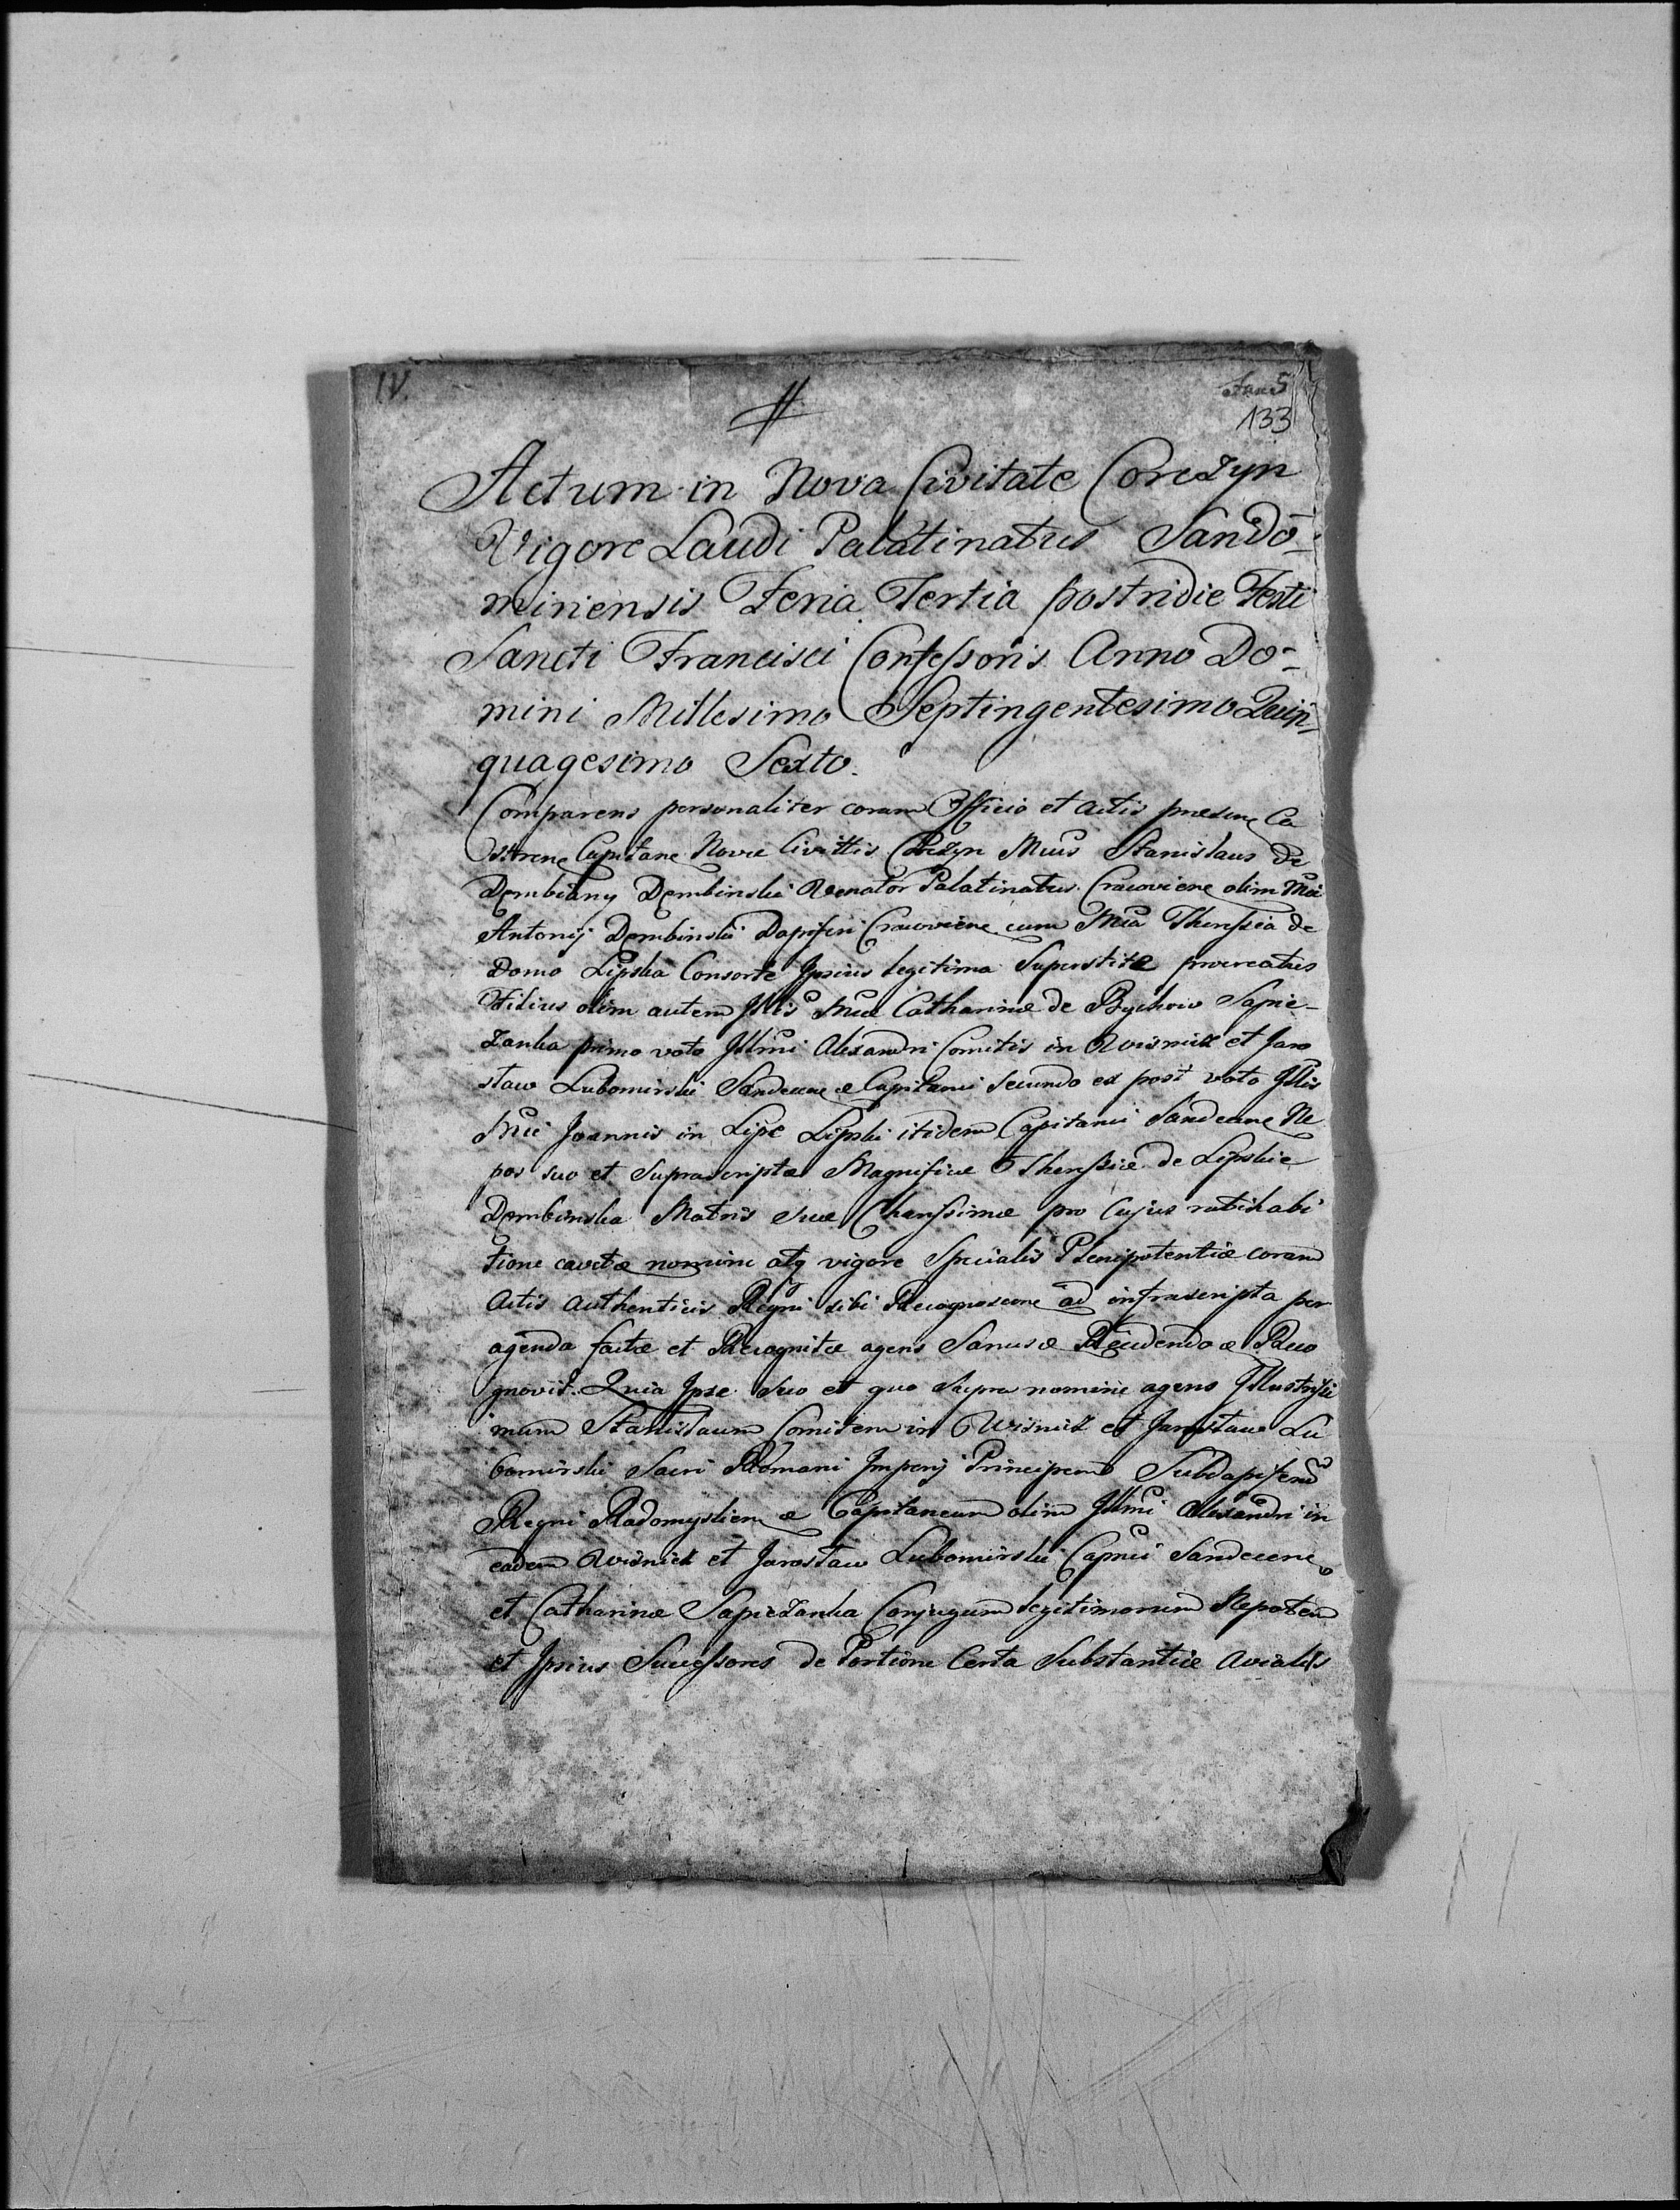 IV.
Fasc 5
133
Actum in Nova Civitate Corczyn
Vigore Laudi Palatinatus Sando-
miriensis Feria Tertia postridie Festi
Sancti Francisci Confessoris Anno Do-
mini Millesimo Septingentesimo Quin-
quagesimo Sexto.
Comparens personaliter coram Officio et Actis præsen Ca
stren Capitan Novæ Civittis Corczyn Mcus Stanislaus de
Dembiany Dembinski Venator Palatinatus Cracovien olim Mci
Antonij Dembinski Dapiferi Cracovien cum Mca Theressia de
Domo Lipska Consorte Ipsius legitima Superstite procreatus
Filius olim autem Illis Mcæ Catharinæ de Bychow Sapie-
zanka primo voto Illmi Alexandri Comitis in Wisnicz et Jaro
slaw Lubomirski Sandecen Capitanei secundo ex post voto Illis
Mci Joannis in Lipe Lipski itidem Capitanei Sandecen Ne
pos suo et Suprascriptæ Magnificæ Theressiæ de Lipskie
Dembinska Matris suæ Charissimæ pro cujus ratihabi
tione cavet nomine atq vigore Specialis Plenipotentiæ coram
Actis Authenticis Regni sibi Recognoscen ad infrascripta per
agenda factæ et Recognitæ agens Sanus Recognovit
gnovit. Quia Ipse suo et quo supra nomine agens Illustrissi
mum Stanislaum Comitem in Wisnicz et Jaroslaw Lu
bomirski Sacri Romani Imperij Principem Subdapiferum
Regni Radomyslien Capitaneum olim Illmi Alexandri in
eadem Wisnicz et Jaroslaw Lubomirski Capnei Sandecen
et Catharinæ Sapiezanka Conjugum legitimorum Nepotem
et Ipsius Successores de Portione Certa Substantiæ Avialis